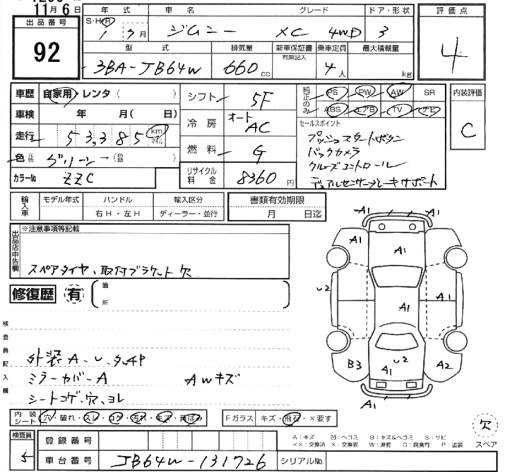 11月 6日
出品番号
92
年 式 車 名 グレード ドア・形状
S・H・R 1 ヶ月 ジムニー XC 4WD 3
評価点
4
型 式 排気量 新車保証書 乗車定員 最大積載量
有無記入
3BA-JB64W 660cc 4人 kg
車歴 自家用・レンタ( )
車検 年 月( )
走行 53,385 km マイル
色 グリーン→( )
カラーNo ZZC
シフト 5F
冷房 オート AC
燃料 G
リサイクル料金 8360円
純正のみ PS PW AW SR
ABS エアB TV ナビ
セールスポイント
プッシュスタートボタン
バックカメラ
クルーズコントロール
デュアルセンサーブレーキサポート
内装評価
C
輸入車 モデル年式 ハンドル 輸入区分
右H・左H ディーラー・並行
書類有効期限
月 日迄
出品店申告欄
※注意事項等記載
スペアタイヤ、取付ブラケット欠
修復歴 有 箇所
検査員記入欄
外装A・U・タッチP
ミラーカバーA AWキズ
シートコゲ穴、ヨレ
A1
A1
A1 A1
U2 A1 A1
A1 A1
B3 U2 A2
A1
A1
内装シート 穴・破れ・スレ・コゲ Fガラス キズ・飛石・×要す
A:キズ 凹:ヘコミ B:キズ&ヘコミ S:サビ
××:交換済 ×:交換要 W:補修 C:腐食 P:塗装
欠
スペア
検査員
登録番号
車台番号 JB64W-131726 シリアルNo.